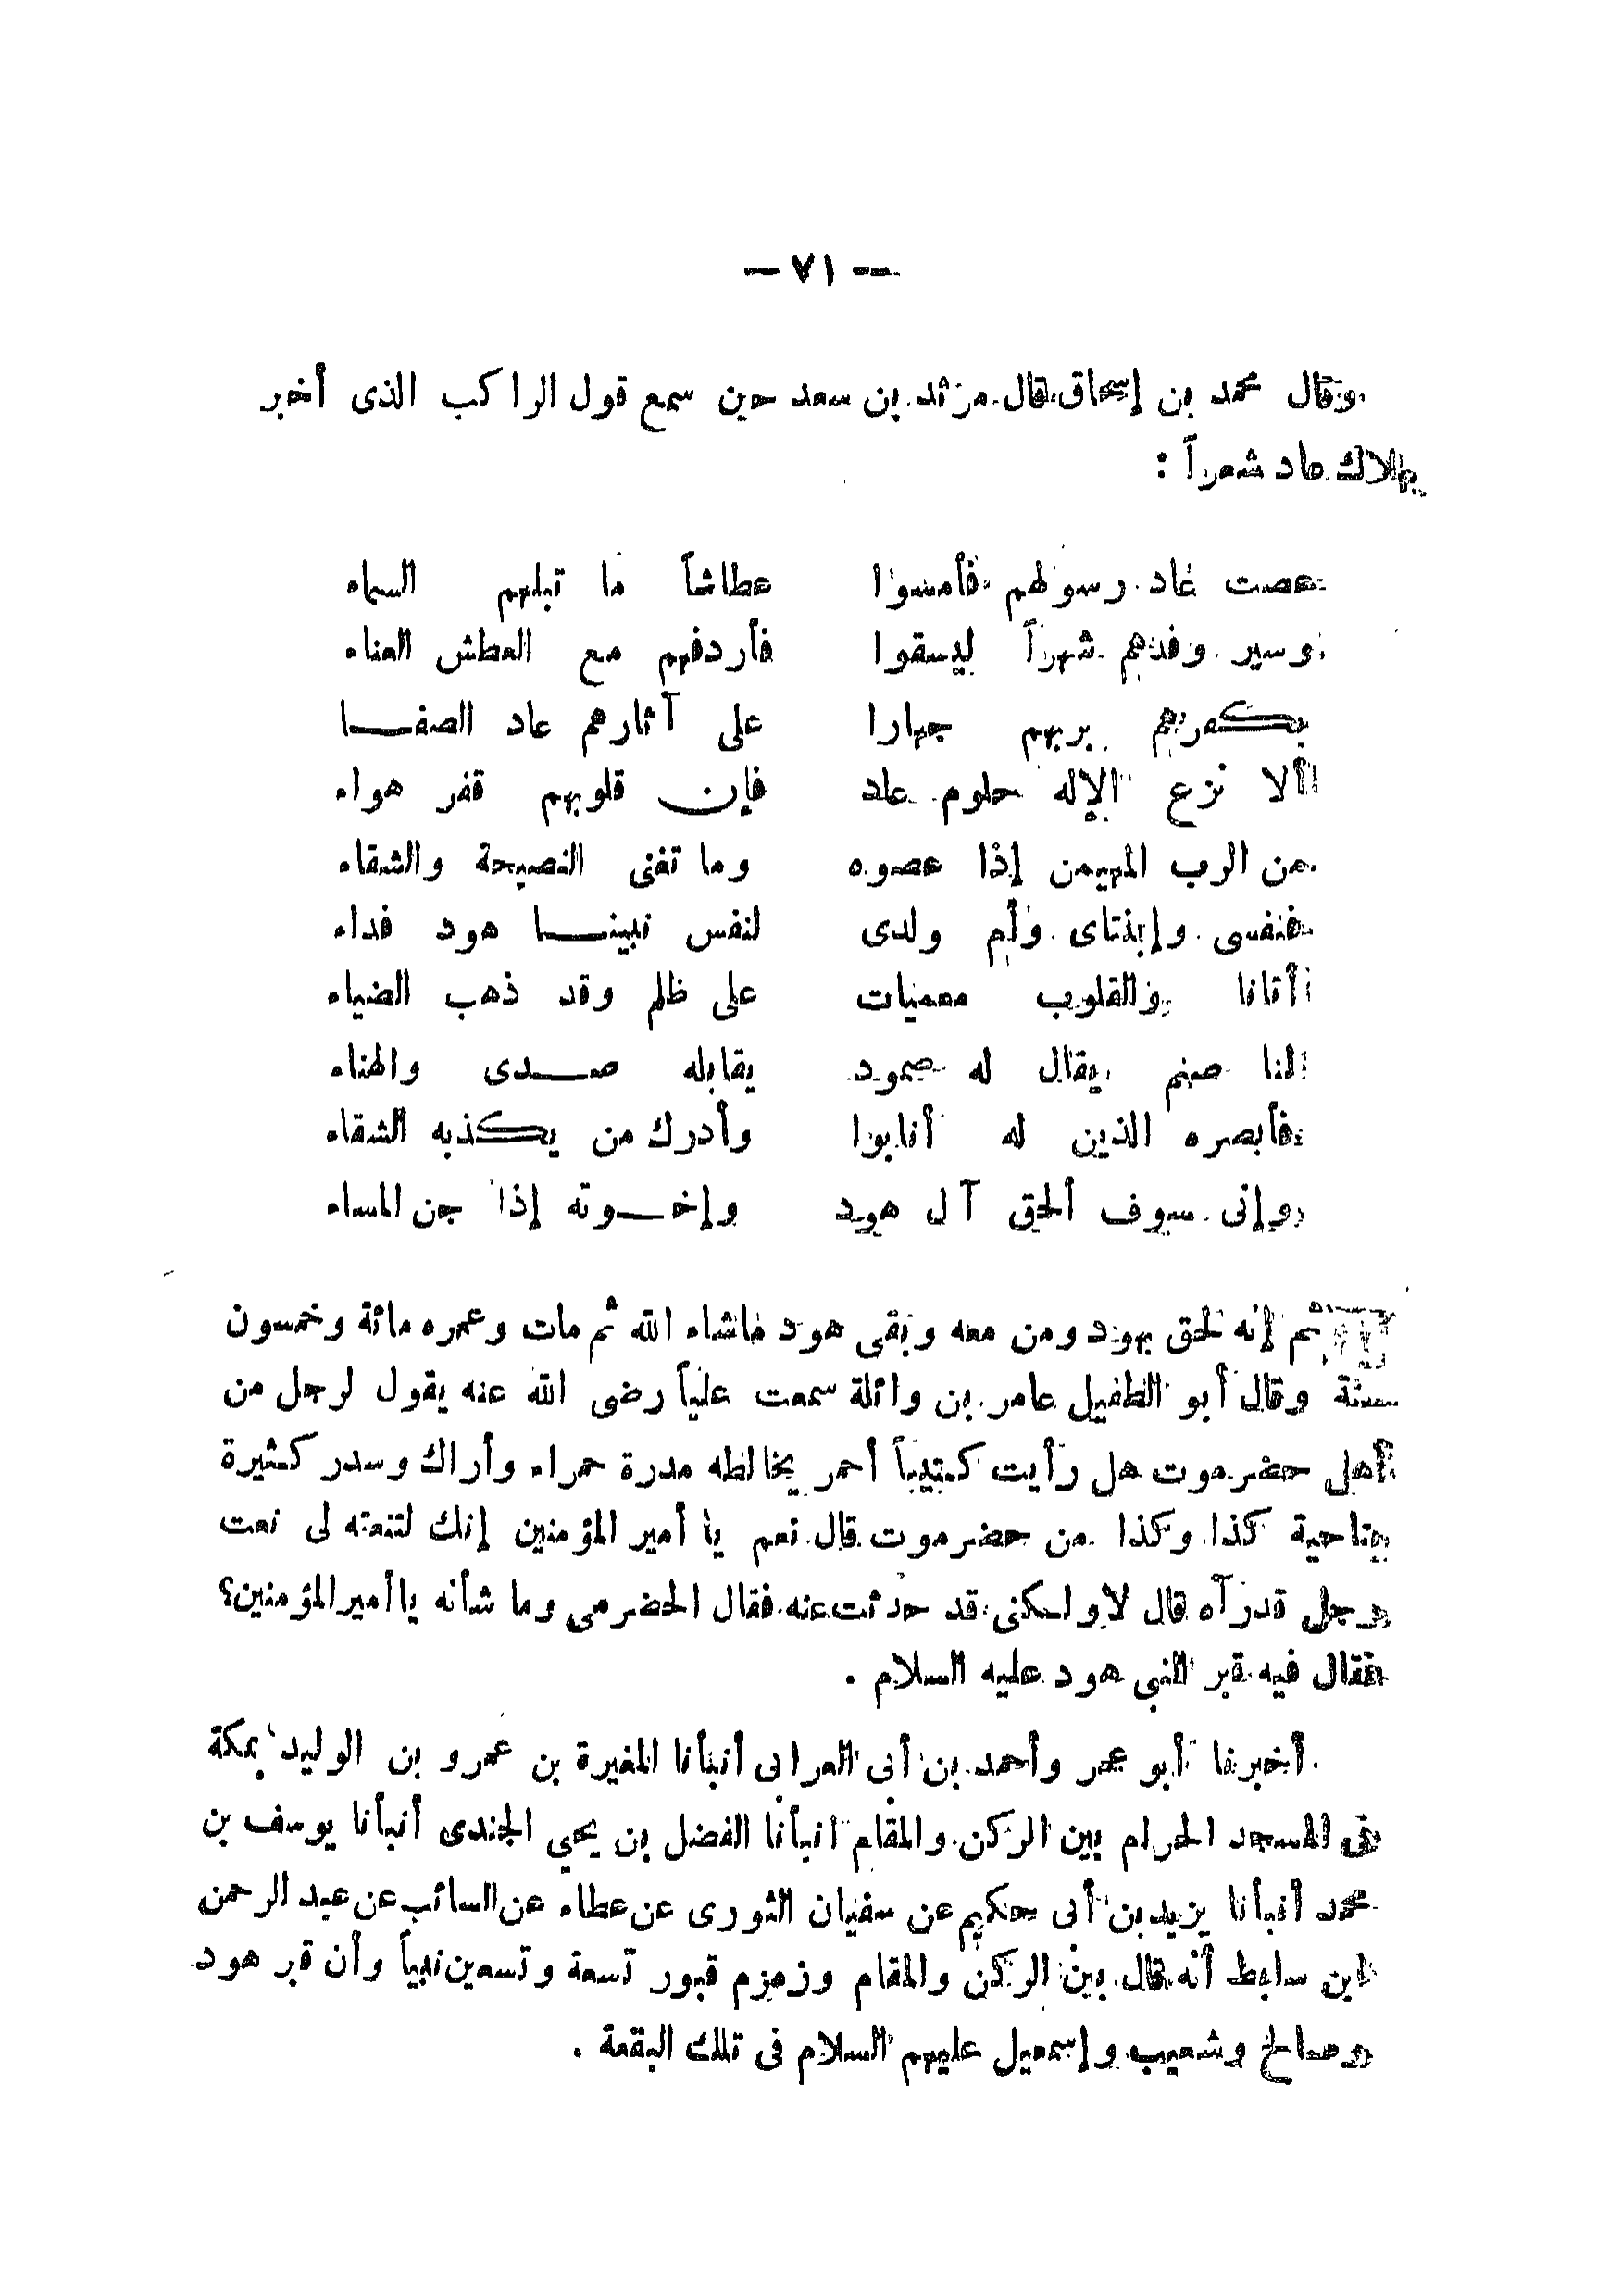 — ٧١ —
وقال محمد بن إسحاق قال مرثد بن سعد حين سمع قول الراكب الذى أخبر
بهلاك عاد شعراً :
عصت عاد رسولهم فأمسوا عطاشاً ما تبلهم السماء
وسير وفدهم شهراً ليسقوا فأردفهم مع العطش العناء
بكفرهم بربهم جهارا على آثارهم عاد الصفا
ألا نزع الإله حلوم عاد فإن قلوبهم قفر هواء
من الرب المهيمن إذا عصوه وما تغنى النصيحة والشقاء
فنفسى وإبنتاى وأم ولدى لنفس نبينا هود فداء
أتانا والقلوب معميات على ظلم وقد ذهب الضياء
لنا صنم يقال له صمود يقابله صدى والهناء
فأبصره الذين له أنابوا وأدرك من يكذبه الشقاء
وإنى سوف ألحق آل هود وإخوته إذا جن المساء
ثم إنه لحق بهود ومن معه وبقى هود ماشاء الله ثم مات وعمره مائة وخمسون
سنة وقال أبو الطفيل عامر بن وائلة سمعت علياً رضى الله عنه يقول لرجل من
أهل حضرموت هل رأيت كثيباً أحمر يخالطه مدرة حمراء وأراك وسدر كثيرة
بناحية كذا وكذا من حضرموت قال نعم يا أمير المؤمنين إنك لتنعته لى نعت
رجل قدرآه قال لا ولسكنى قد حدثت عنه فقال الحضرمى وما شأنه يا أمير المؤمنين؟
فقال فيه قبر النبى هود عليه السلام .
أخبرنا أبو عمر وأحمد بن أبى العرابى أنبأنا المغيرة بن عمرو بن الوليد بمكة
فى المسجد الحرام بين الركن والمقام انبأنا الفضل بن يحي الجندى أنبأنا يوسف بن
محمد أنبأنا يزيد بن أبى حكيم عن سفيان الثورى عن عطاء عن السائب عن عبد الرحمن
ابن سابط أنه قال بين الركن والمقام وزمزم قبور تسعة وتسعين نبياً وأن قبر هود
وصالح وشعيب وإسمعيل عليهم السلام فى تلك البقعة .